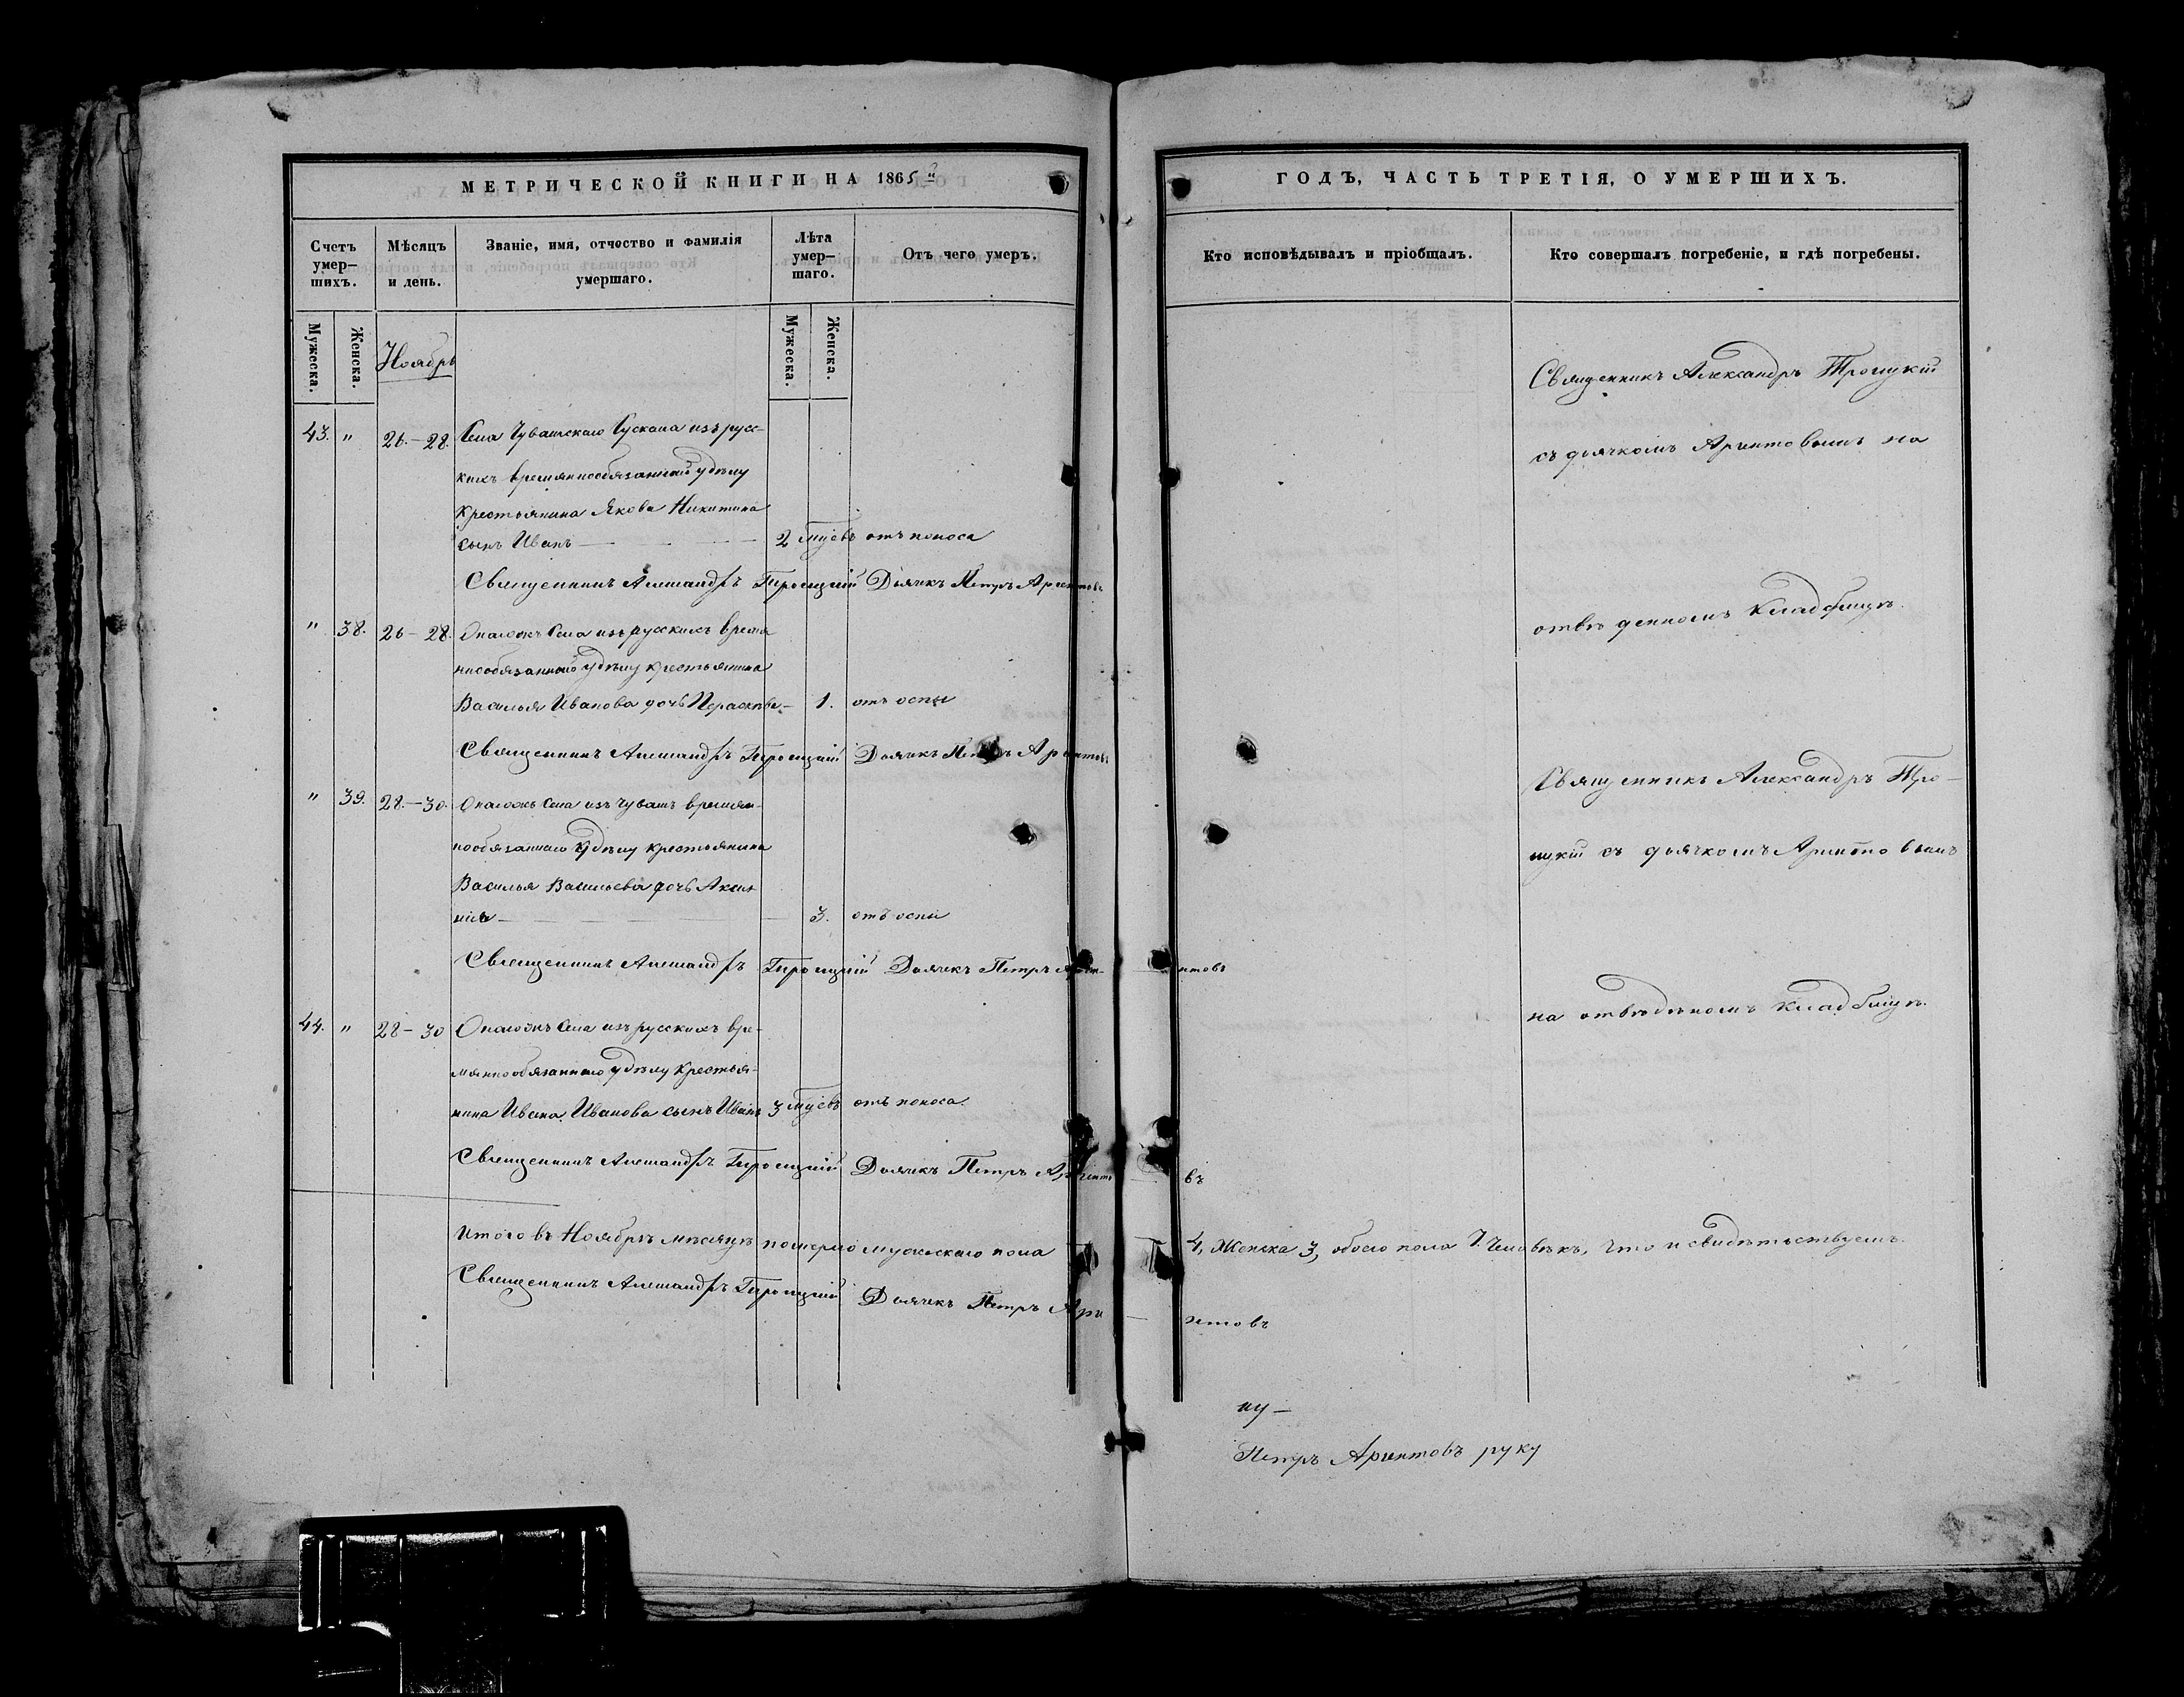 МЕТРИЧЕСКОЙ КНИГИ НА 1865й
Счетъ умер—шихъ.
Мѣсяцъ и день.
Званіе, имя, отчество и фамилія умершаго.
Лѣта умер—шаго.
Отъ чего умеръ.
Мужеска.
Женска.
Мужеска.
Женска.
Ноябрь
43. " 26.-28. Села Чувашскаго Сускана изъ русс-
кихъ времяннообязаннаго удѣлу
крестьянина Якова Никитина
сынъ Иванъ 2 мцвъ отъ поноса
Священникъ Александръ Троицкій Дьячекъ Петръ Аристовъ
" 38. 26-28. Онагожъ села изъ русскихъ времян
нообязаннаго удѣлу крестьянина
Василья Иванова дочь Параскева- 1. отъ оспы
Священникъ Александръ Троицкій Дьячекъ Петръ
" 39. 28.-30. Онагожъ села изъ чувашъ времян-
нообязаннаго удѣлу крестьянина
Василья Васильева дочь Аксин-
нія 3. отъ оспы
Священникъ Александръ Троицкій Дьячекъ Петръ
44. " 28-30 Онагожъ села изъ русскихъ вре-
мяннообязаннаго удѣлу крестья-
нина Ивана Иванова сынъ Иванъ 3 мцвъ отъ поноса.
Священникъ Александръ Троицкій Дьячекъ Петръ
Итого въ Ноябрѣ мѣсяцѣ померло мужескаго пола
Священникъ Александръ Троицкій Дьячекъ Петръ
ГОДЪ, ЧАСТЬ ТРЕТІЯ, О УМЕРШИХЪ.
Кто исповѣдывалъ и пріобщалъ.
Кто совершалъ погребеніе, и гдѣ погребены.
Священникъ Александръ Троицкій
съ дьячкомъ на
отведенномъ кладбищѣ.
Священникъ Александръ Тро-
ицкій съ дьячкомъ
на отведѣномъ кладбищѣ.
въ
4, Женска 3, обоего пола 7. Человѣкъ, что и свидѣтельствуемъ.
товъ
цу-
Петръ руку